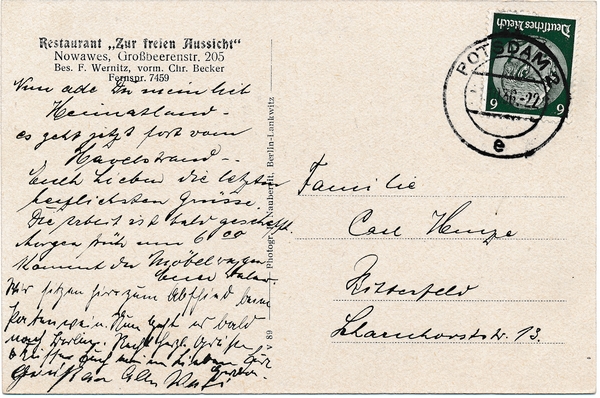 Restaurant „Zur freien Aussicht"
Nowawes, Großbeerenstr. 205
Bes. F. Wernitz, vorm. Chr. Becker
Fernspr. 7459
Nun ade Du mein lieb
Heimatland –
es geht jetzt fort vom
Havelstrand –
Euch Lieben die letzten
herzlichsten Grüsse.
Die Arbeit ist bald geschafft.
morgen früh um 6 00
kommt der Möbelwagen
Wir sitzen hier zum Abschied beim
Nun geht es bald
nach
Photogr. Naubereit, Berlin-Lankwitz
V 89
Deutsches Reich
6 6
POTSDAM 2
36.-22
e
Familie
Carl Hinze
Bitterfeld
Scharnhorststr. 13.